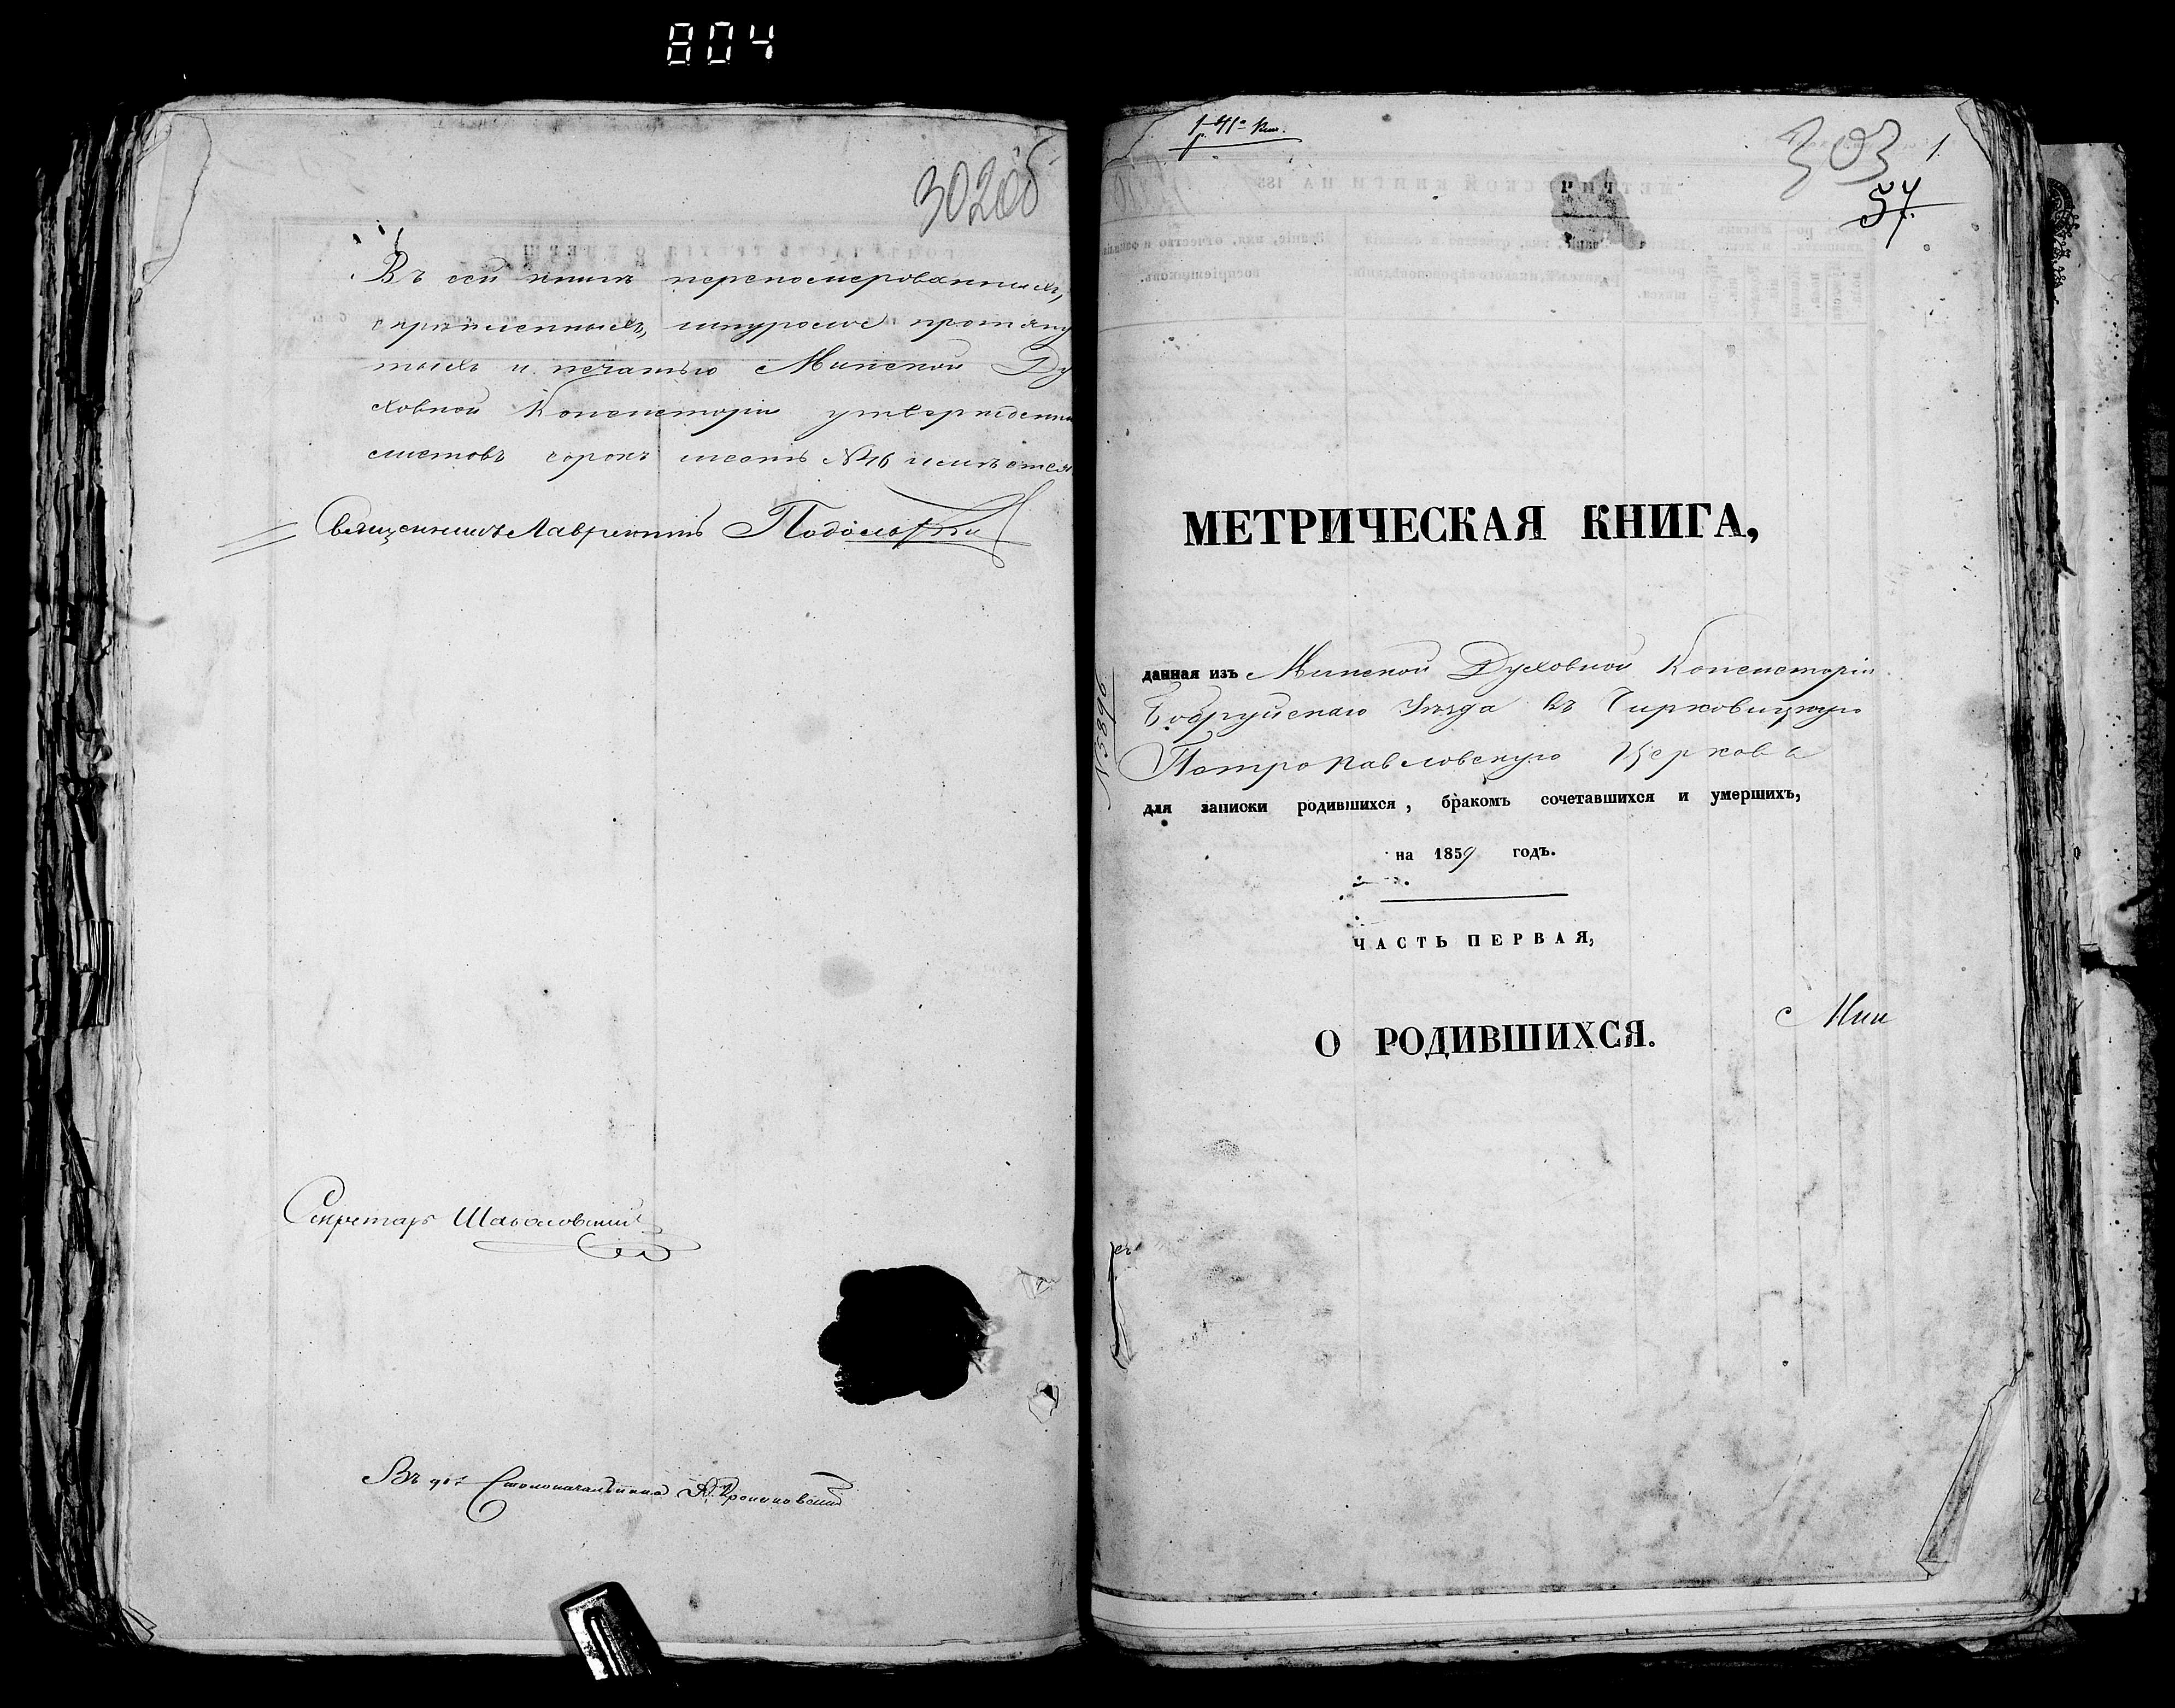 804
302об
Въ сей книгѣ перепомерованныхъ,
скрѣпленныхъ, шнуромъ протяну
тыхъ и печатью Минской Ду
ховной Консисторіи утвержденны
листовъ сорокъ шесть №46 имѣется
Священникъ Лаврентій
Секретарь
Въ дол. Столоначальника
303 1.
57.
МЕТРИЧЕСКАЯ КНИГА,
данная изъ Минской Духовной Консисторіи
Бобруйскаго Уѣзда въ Чирковицкую
Петропавловскую Церковь
для записки родившихся, бракомъ сочетавшихся и умершихъ,
на 1859 годъ.
ЧАСТЬ ПЕРВАЯ,
О РОДИВШИХСЯ.
Мин
№ 5896